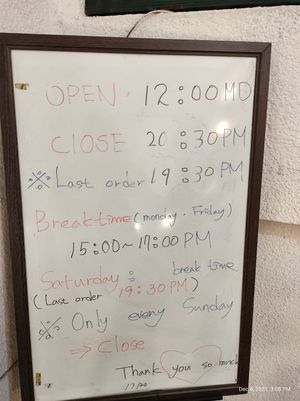 OPEN. 12:00 MD
CLOSE 20:30 PM
※Last order 19:30 PM
Break time (monday. Friday)
15:00~17:00 PM
Saturday: break time
(Last order 19:30 PM)
※ Only every Sunday
⇒ Close
Thank you so much
Dec 4, 2021, 3:08 PM